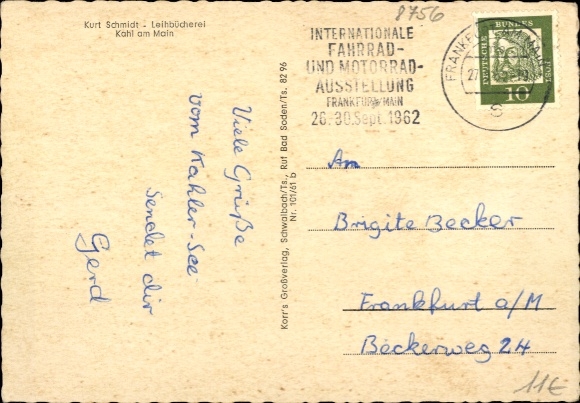 Kurt Schmidt - Leihbücherei
Kahl am Main
8756
INTERNATIONALE
FAHRRAD-
UND MOTORRAD-
AUSSTELLUNG
FRANKFURT/MAIN
26.-30. Sept. 1962
FRANKFURT
27.
S
DEUTSCHE BUNDESPOST
10
Viele Grüße
vom Kahler-See
Sendet dir
Gerd
Korr's Großverlag, Schwalbach/Ts., Ruf Bad Soden/Ts. 82 96
Nr. 101/61 b
An
Brigite Becker
Frankfurt a/M
Beckerweg 24
11€